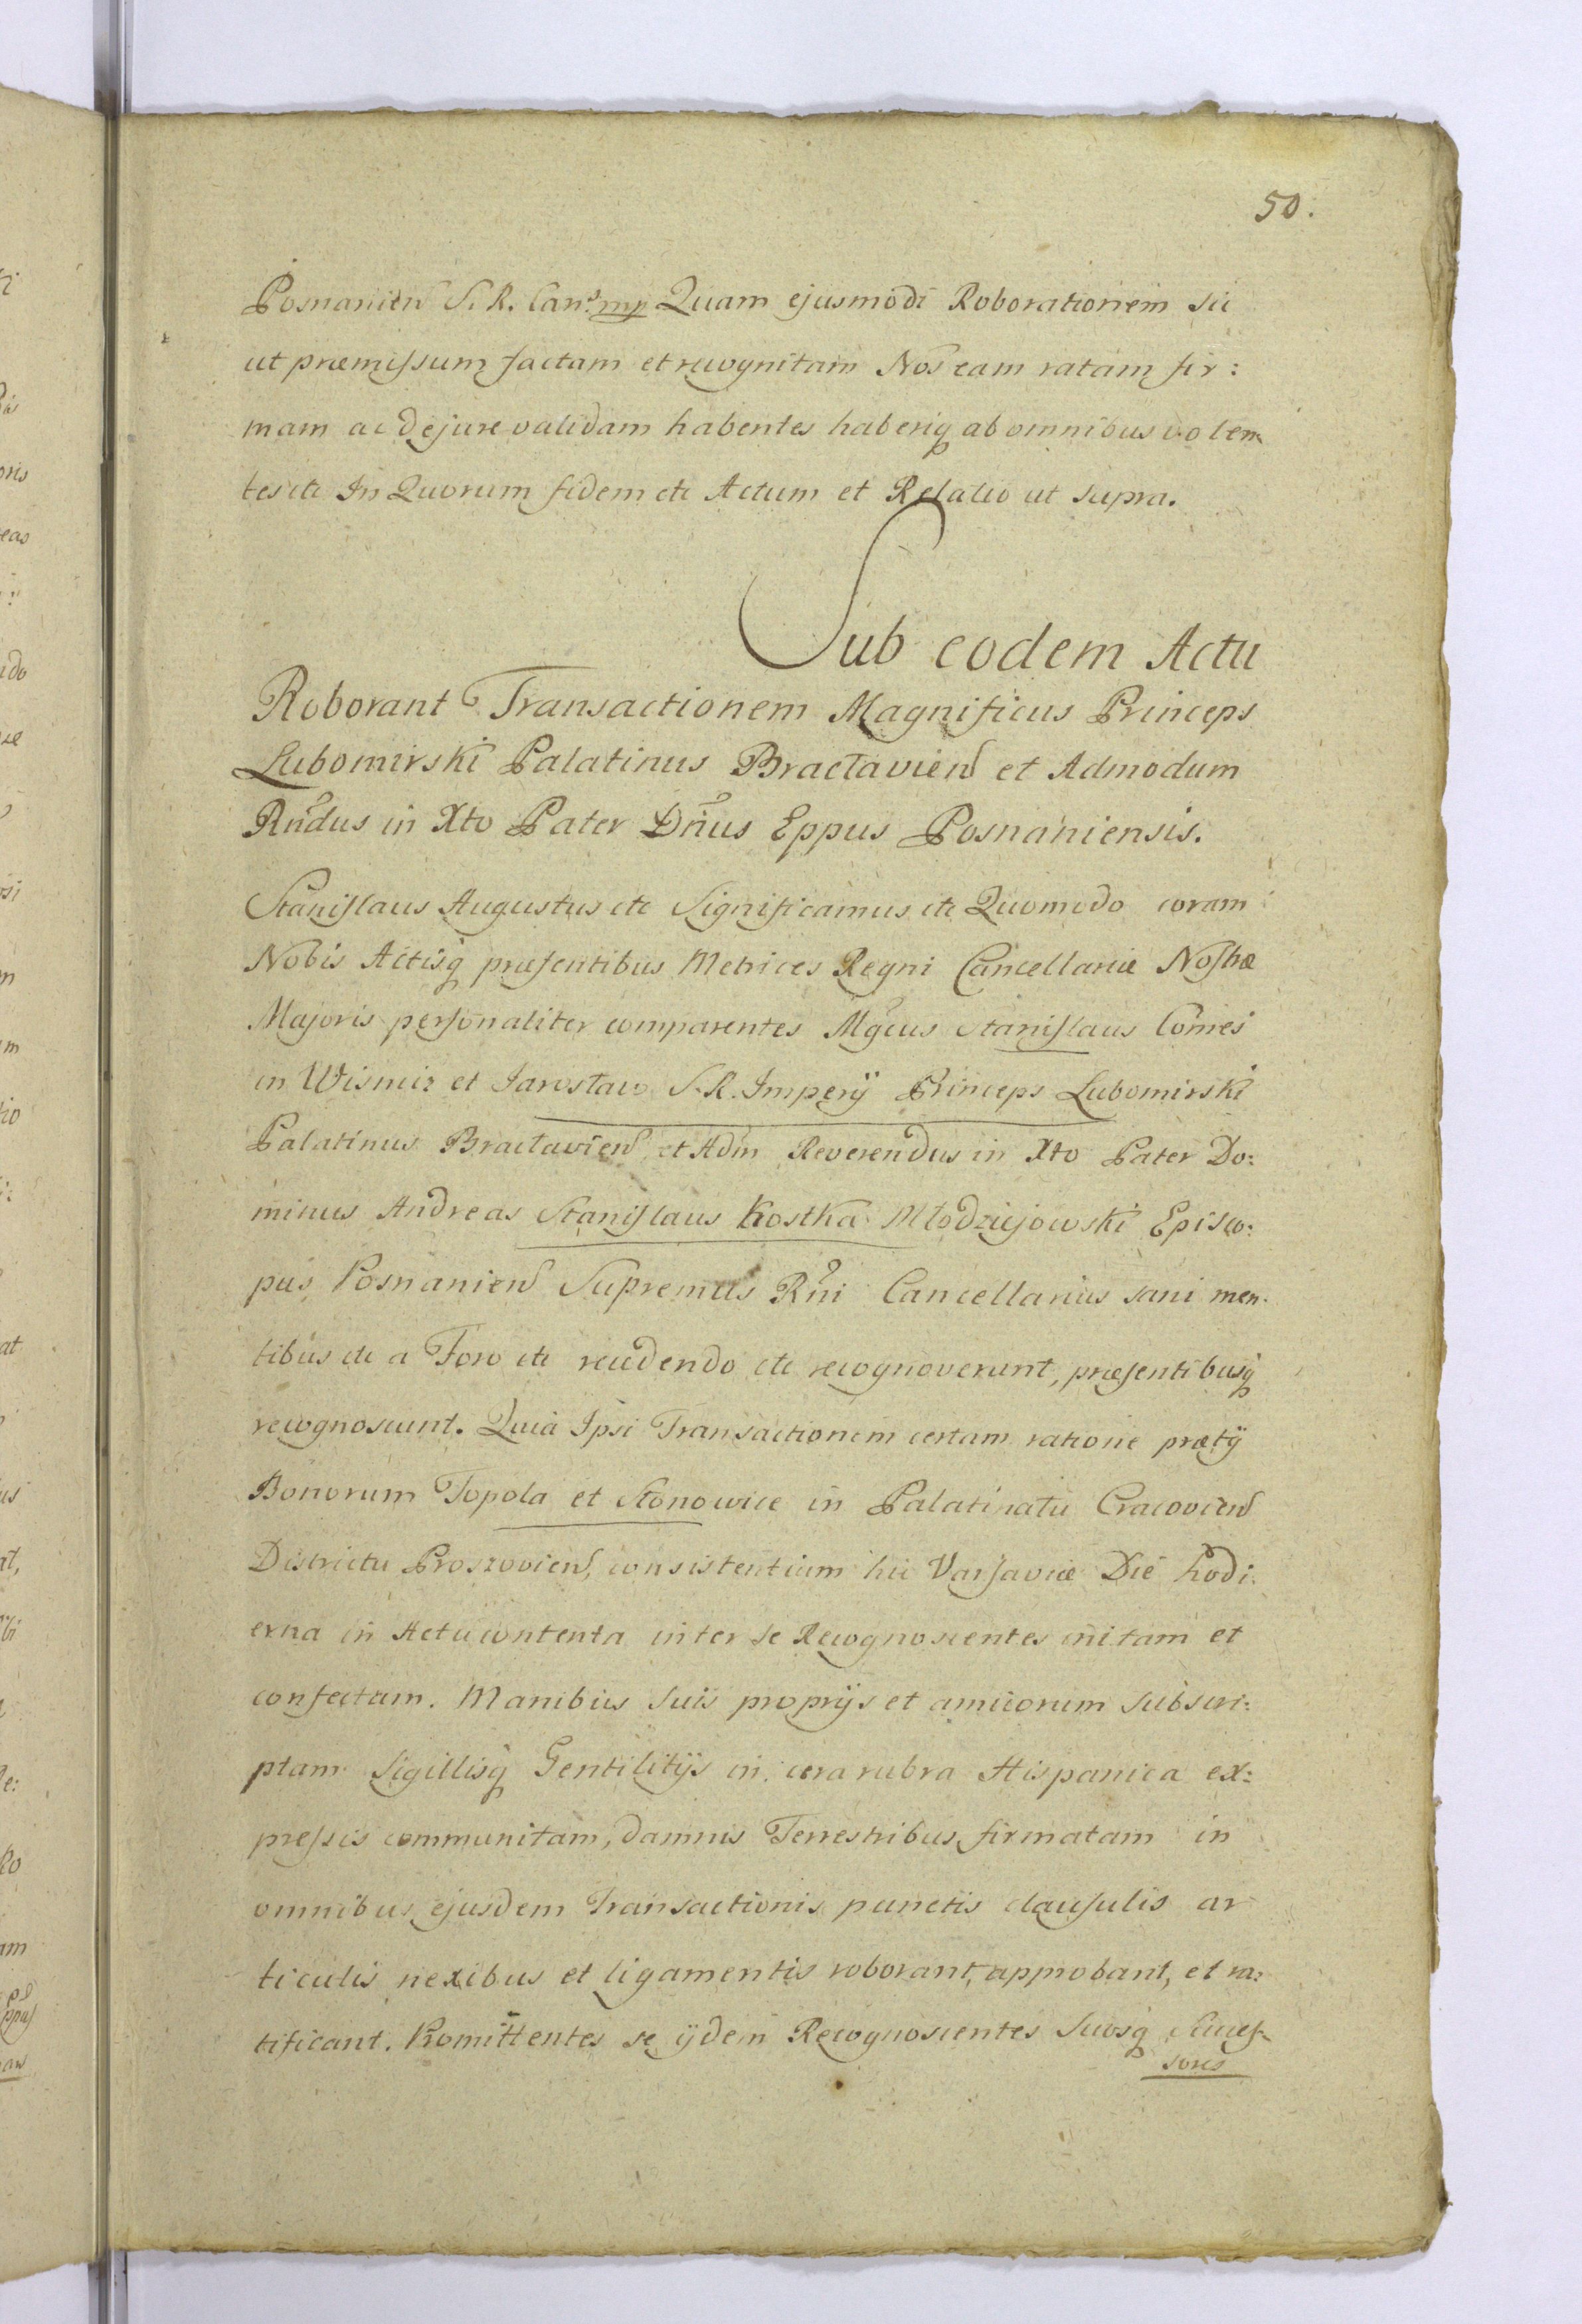 50.
Posnanien S. R. Canc. mp Quam ejusmodi Roborationem sic
ut præmissum factam et recognitam Nos eam ratam fir:
mam ac de jure validam habentes haberiq ab omnibus volen
tes etc In Quorum fidem etc Actum et Relatio ut supra.
Sub eodem Actu
Roborant Transactionem Magnificus Princeps
Lubomirski Palatinus Braclavien et Admodum
Rndus in Xto Pater Dnus Eppus Posnaniensis.
Stanislaus Augustus etc Significamus etc Quomodo coram
Nobis Actisq præsentibus Metrices Regni Cancellariæ Nostræ
Majoris personaliter comparentes Mgcus Stanislaus Comes
in Wisnicz et Jaroslaw S. R. Imperij Princeps Lubomirski
Palatinus Braclavien et Adm Reverendus in Xto Pater Do:
minus Andreas Stanislaus Kostka Młodziejowski Episco:
pus Posnanien Supremus Rni Cancellarius sani men
tibus etc a Foro etc recedendo etc recognoverunt, præsentibusq
recognoscunt. Quia Ipsi Transactionem certam ratione prætij
Bonorum Topola et Stonowice in Palatinatu Cracovien
Districtu Proszovien, consistentium hic Varsaviæ Die hodi
erna in Actu contenta inter se Recognoscentes initam et
confectam. Manibus suis proprijs et amicorum subscri:
ptam Sigillisq Gentilitijs in cera rubra Hispanica ex:
pressis communitam, damnis Terrestribus firmatam in
omnibus ejusdem Transactionis punctis clausulis ar
ticulis nexibus et ligamentis roborant, approbant, et ra:
tificant. Promittentes se ijdem Recognoscentes Suosq Succes
sores